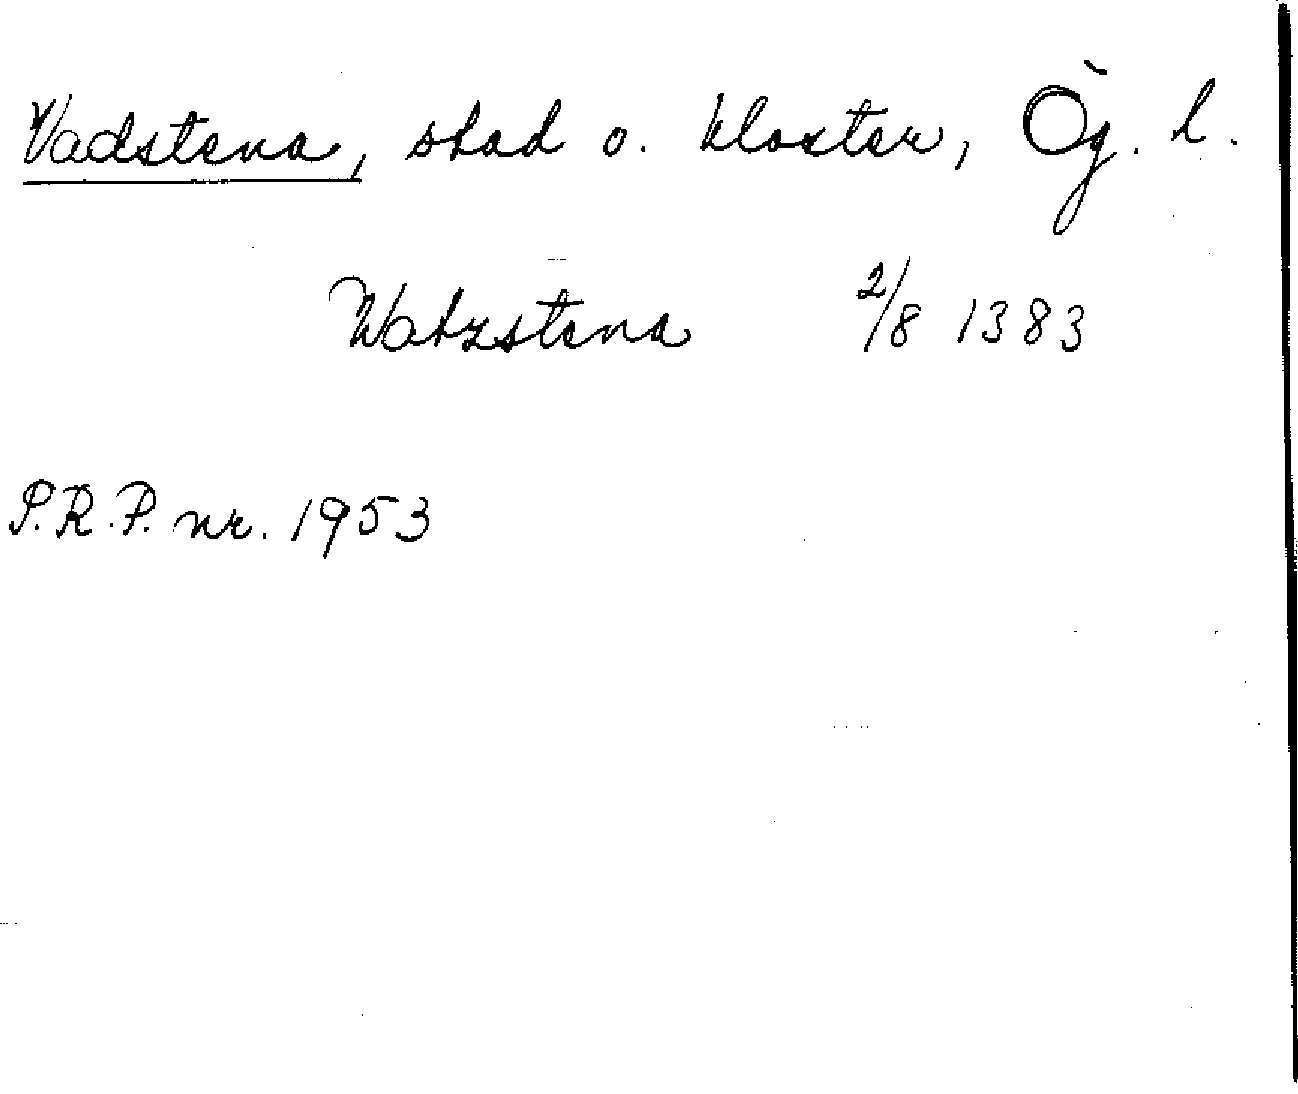 Vadstena, stad o. kloster, Ög. l.
Watzstena 2/8 1383
P.R.P. nr. 1953